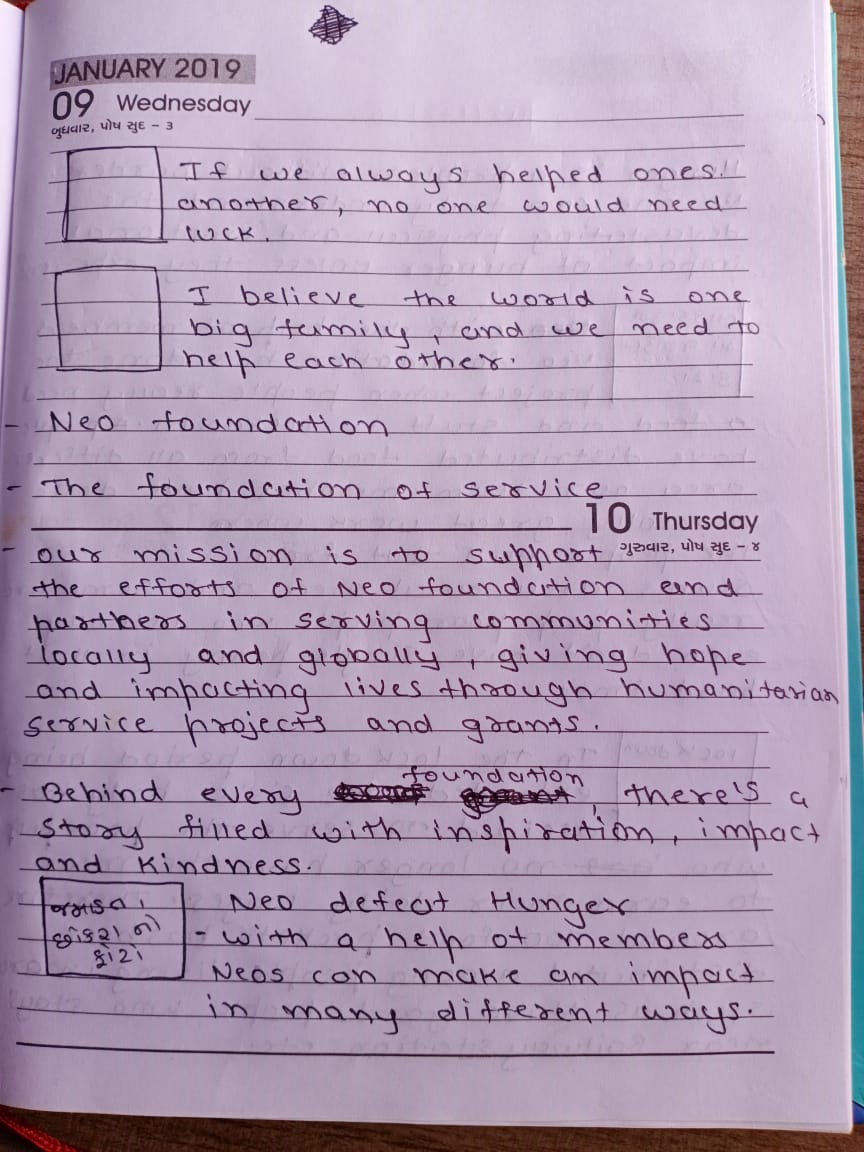 JANUARY 2019
09 Wednesday
બુધવાર, પોષ સુદ - ૩
If we always helped ones
another, no one would need
luck.
I believe the world is one
big family, and we need to
help each other.
- Neo foundation
- The foundation of service
10 Thursday
ગુરુવાર, પોષ સુદ - ૪
- our mission is to support
the efforts of Neo foundation and
partners in serving communities
locally and globally, giving hope
and impacting lives through humanitarian
service projects and grants.
- Behind every foundation, there's a
story filled with inspiration, impact
and kindness.
જમાડવા
છોકરા નો
ફોટો
Neo defeat Hunger
- with a help of members
Neos can make an impact
in many different ways.